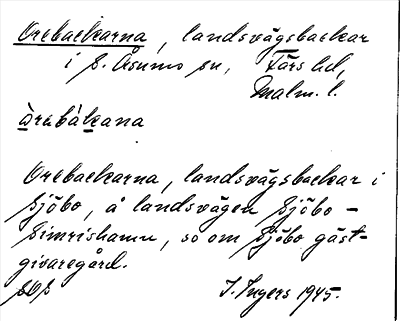 Orebackarna, landsvägsbackar
i S. Åsums sn, Färs hd,
Malm. l.
òrabákana
Orebackarna, landsvägsbackar i
Sjöbo, å landsvägen Sjöbo –
Simrishamn, so om Sjöbo gäst-
givaregård.
I. Ingers 1945.